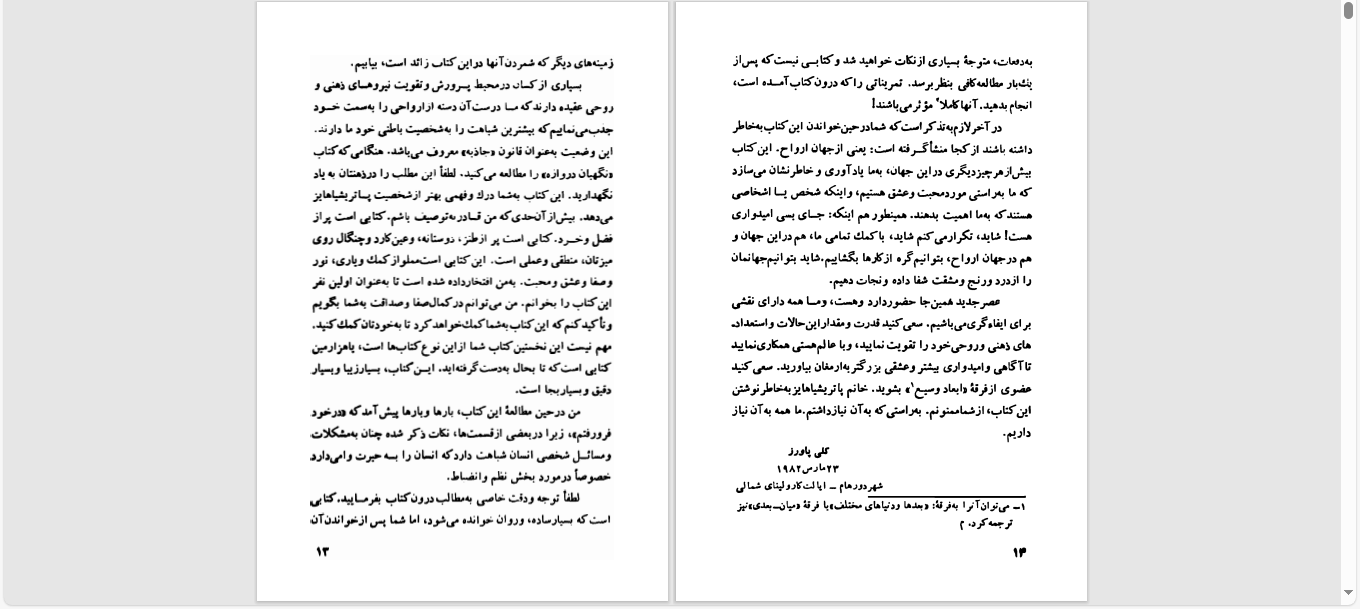 زمینه‌های دیگر که شمردن آنها در این کتاب زائد است، بیابیم.
بسیاری از کسان در محیط پـرورش و تقویت نیروهـای ذهنی و
روحی عقیده دارند که مـا درست آن دسته از ارواحی را به‌سمت خـود
جذب می‌نماییم که بیشترین شباهت را به‌شخصیت باطنی خود ما دارند.
این وضعیت به‌عنوان قانون «جاذبه» معروف می‌باشد. هنگامی که کتاب
«نگهبان دروازه» را مطالعه می‌کنید. لطفاً این مطلب را در ذهنتان به یاد
نگهدارید. این کتاب به‌شما درك و فهمی بهتر از شخصیت پـاتریشیاهایز
می‌دهد. بیش از آن حدی که من قـادر به توصیف باشم. کتابی است پر از
فضل و خـرد. کتابی است پر از طنز، دوستانه، و عین کارد و چنگال روی
میزتان، منطقی و عملی است. این کتابی است مملو از کمك و یاری، نور
و صفا و عشق و محبت. به‌من افتخار داده شده است تا به‌عنوان اولین نفر
این کتاب را بخوانم. من می‌توانم در کمال صفا و صداقت به‌شما بگویم
و تأکید کنم که این کتاب به‌شما کمك خواهد کرد تا به‌خودتان کمك کنید.
مهم نیست این نخستین کتاب شما از این نوع کتاب‌ها است، یا هزارمین
کتابی است که تا بحال به‌دست گرفته‌اید. ایـن کتاب، بسیار زیبا و بسیار
دقیق و بسیار بجا است.
من در حین مطالعهٔ این کتاب، بارها و بارها پیش آمد که «در خود
فرو رفتم»، زیرا در بعضی از قسمت‌ها، نکات ذکر شده چنان به‌مشکلات
و مسائـل شخصی انسان شباهت دارد که انسان را بـه حیرت وامی‌دارد،
خصوصاً در مورد بخش نظم و انضباط.
لطفاً توجه و دقت خاصی به‌مطالب درون کتاب بفرمـایید. کتابی
است که بسیار ساده، و روان خوانده می‌شود، اما شما پس از خواندن آن
۱۳
به‌دفعات، متوجهٔ بسیاری از نکات خواهید شد و کتابـی نیست که پس از
یك‌بار مطالعه کافی بنظر برسد. تمریناتی را که درون کتاب آمـده است،
انجام بدهید. آنها کاملاً مؤثر می‌باشند!
در آخر لازم به‌تذکر است که شما در حین خواندن این کتاب به‌خاطر
داشته باشند از کجا منشأ گـرفته است: یعنی از جهان ارواح. این کتاب
بیش از هر چیز دیگری در این جهان، به‌ما یادآوری و خاطرنشان می‌سازد
که ما به‌راستی مورد محبت و عشق هستیم، و اینکه شخص یـا اشخاصی
هستند که به‌ما اهمیت بدهند. همینطور هم اینکه: جـای بسی امیدواری
هست! شاید، تکرار می‌کنم شاید، با کمك تمامی ما، هم در این جهان و
هم در جهان ارواح، بتوانیم گره از کارها بگشاییم. شاید بتوانیم جهانمان
را از درد و رنج و مشقت شفا داده و نجات دهیم.
عصر جدید همین‌جا حضور دارد و هست، و مـا همه دارای نقشی
برای ایفاءگری می‌باشیم. سعی کنید قدرت و مقدار این حالات و استعدادـ
های ذهنی و روحی خود را تقویت نمایید، و با عالم هستی همکاری نمایید
تا آگاهی و امیدواری بیشتر و عشقی بزرگتر به‌ارمغان بیاورید. سعی کنید
عضوی از فرقهٔ «ابعاد وسیع۱» بشوید. خانم پاتریشیاهایز به‌خاطر نوشتن
این کتاب، از شما ممنونم. به‌راستی که به‌آن نیاز داشتم. ما همه به‌آن نیاز
داریم.
کلی پاورز
۲۳ مارس ۱۹۸۲
شهر دورهام ـ ایالت کارولینای شمالی
۱ـ می‌توان آنرا به‌فرقهٔ: «بعدها و دنیاهای مختلف» یا فرقهٔ «میان‌ـ‌بعدی» نیز
ترجمه کرد. م
۱۴